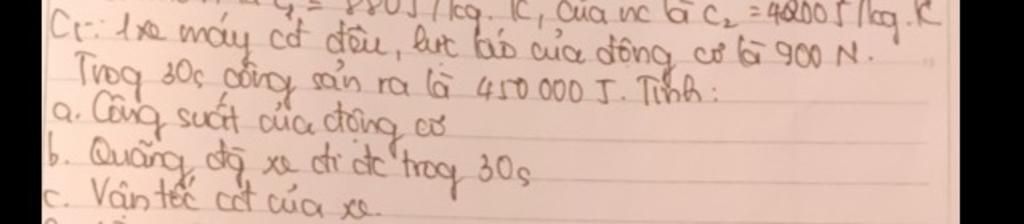 = 880J/kg.K, của nc là c₂ = 4200J/kg.K
1 xe máy cđ đều, lực kéo của động cơ là 900 N.
Trog 30s công sản ra là 450 000 J. Tính:
a. Công suất của động cơ
b. Quãng đg xe đi đc trog 30s
c. Vận tốc cđ của xe.